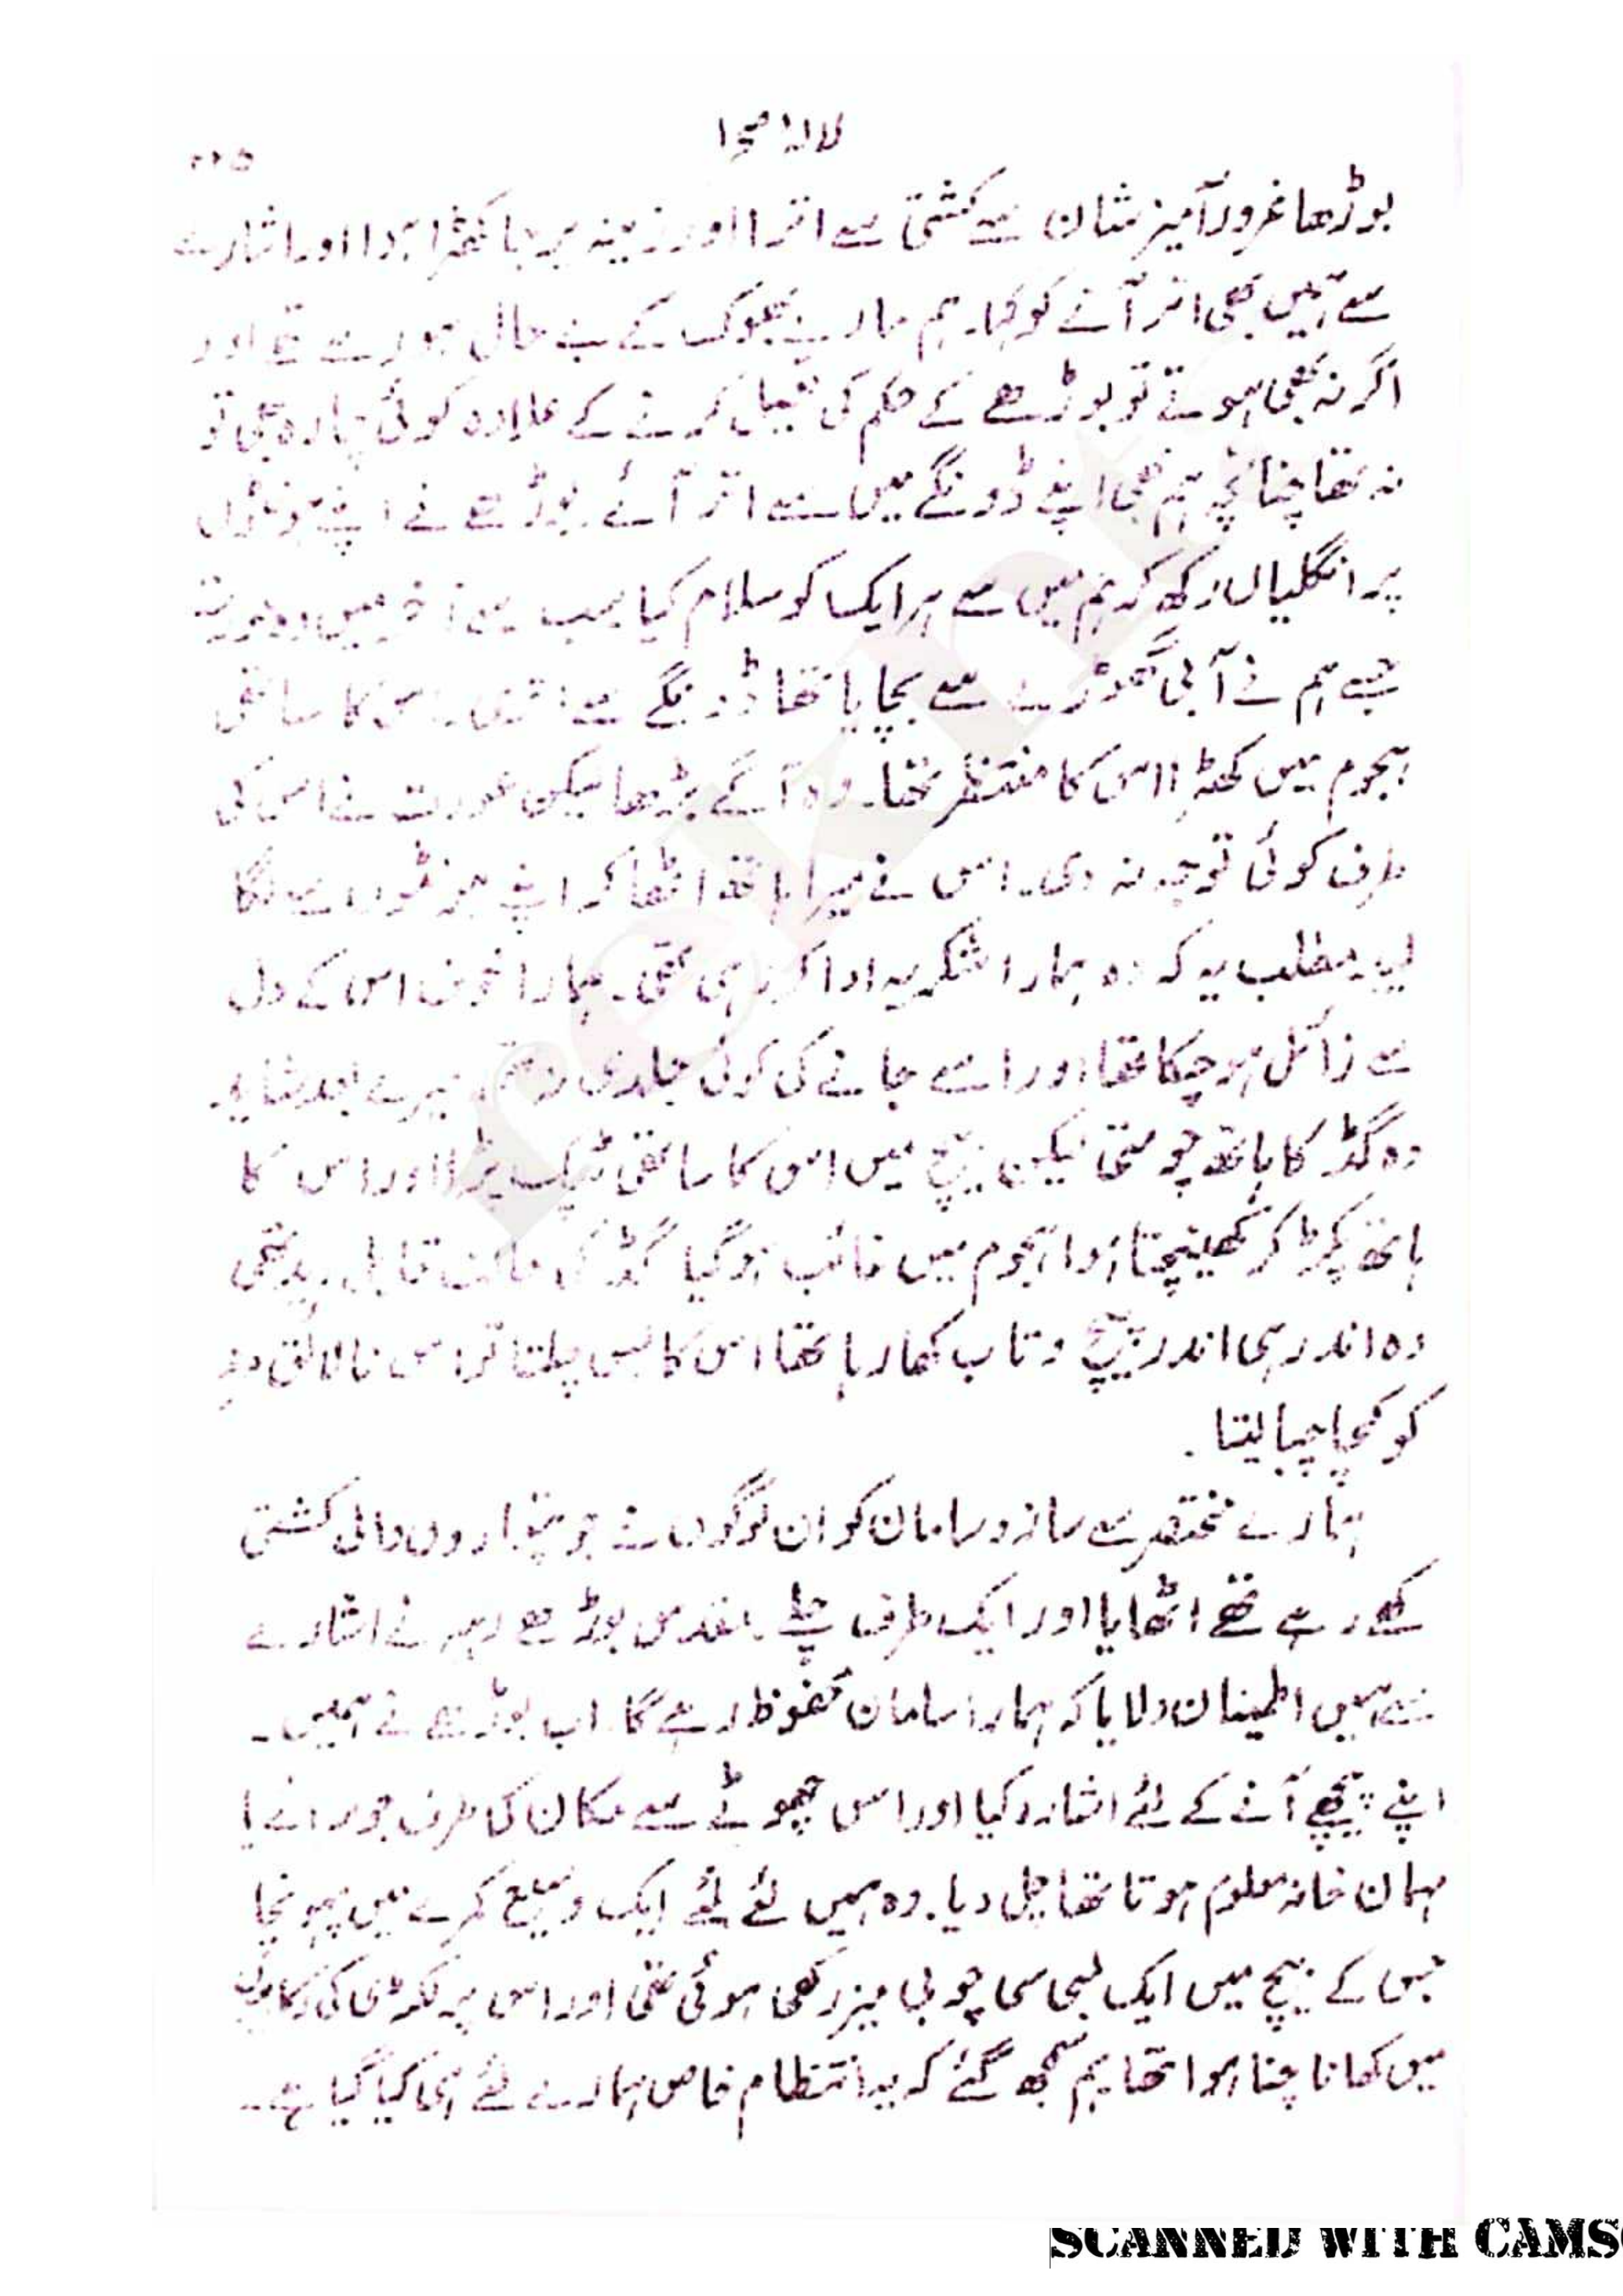 لالۂ صحرا
۲۲۵
بوڑھا غرور آمیز شان سے کشتی سے اترا اور زینہ پر جا کھڑا ہوا اور اشارے
سے ہمیں بھی اتر آنے کو کہا۔ ہم مارے بھوک کے بے حال ہو رہے تھے اور
اگر نہ بھی ہوتے تو بوڑھے کے حکم کی تعمیل کرنے کے علاوہ کوئی چارہ بھی تو
نہ تھا چنانچہ ہم بھی اپنے ڈونگے میں سے اتر آئے۔ بوڑھے نے اپنے ہونٹوں
پر انگلیاں رکھ کر ہم میں سے ہر ایک کو سلام کیا سب سے آخر میں وہ عورت
جسے ہم نے آبی گھوڑے سے بچایا تھا ڈونگے سے اتری۔ اس کا ساتھی
ہجوم میں کھڑا اس کا منتظر تھا۔ وہ آگے بڑھا لیکن عورت نے اس کی
طرف کوئی توجہ نہ دی۔ اس نے میرا ہاتھ اٹھا کر اپنے ہونٹوں سے لگا
لیا۔ مطلب یہ کہ وہ ہمارا شکریہ ادا کر رہی تھی۔ ہمارا خوف اس کے دل
سے زائل ہو چکا تھا اور اسے جانے کی کوئی جلدی نہ تھی۔ میرے بعد شاید
وہ گڈ کا ہاتھ چومتی لیکن بیچ میں اس کا ساتھی ٹپک پڑا اور اس کا
ہاتھ پکڑ کر کھینچتا ہوا ہجوم میں غائب ہو گیا گڈ کی حالت قابل دید تھی
وہ اندر ہی اندر پیچ و تاب کھا رہا تھا اس کا بس چلتا تو اس نالائق مرد
کو کچا چبا لیتا۔
ہمارے مختصر سے ساز و سامان کو ان لوگوں نے جو پتواروں والی کشتی
کھے رہے تھے اٹھایا اور ایک طرف چلے۔ مقدس بوڑھے رہبر نے اشارے
سے ہمیں اطمینان دلایا کہ ہمارا سامان محفوظ رہے گا۔ اب بوڑھے نے ہمیں۔
اپنے پیچھے آنے کے لئے اشارہ کیا اور اس چھوٹے سے مکان کی طرف جو سرائے یا
مہمان خانہ معلوم ہوتا تھا چل دیا۔ وہ ہمیں لئے لئے ایک وسیع کمرے میں پہونچا
جس کے بیچ میں ایک لمبی سی چوبی میز رکھی ہوئی تھی اور اس پر لکڑی کی رکابیوں
میں کھانا چنا ہوا تھا ہم سمجھ گئے کہ یہ انتظام خاص ہمارے لئے ہی کیا گیا ہے۔
SCANNED WITH CAMS